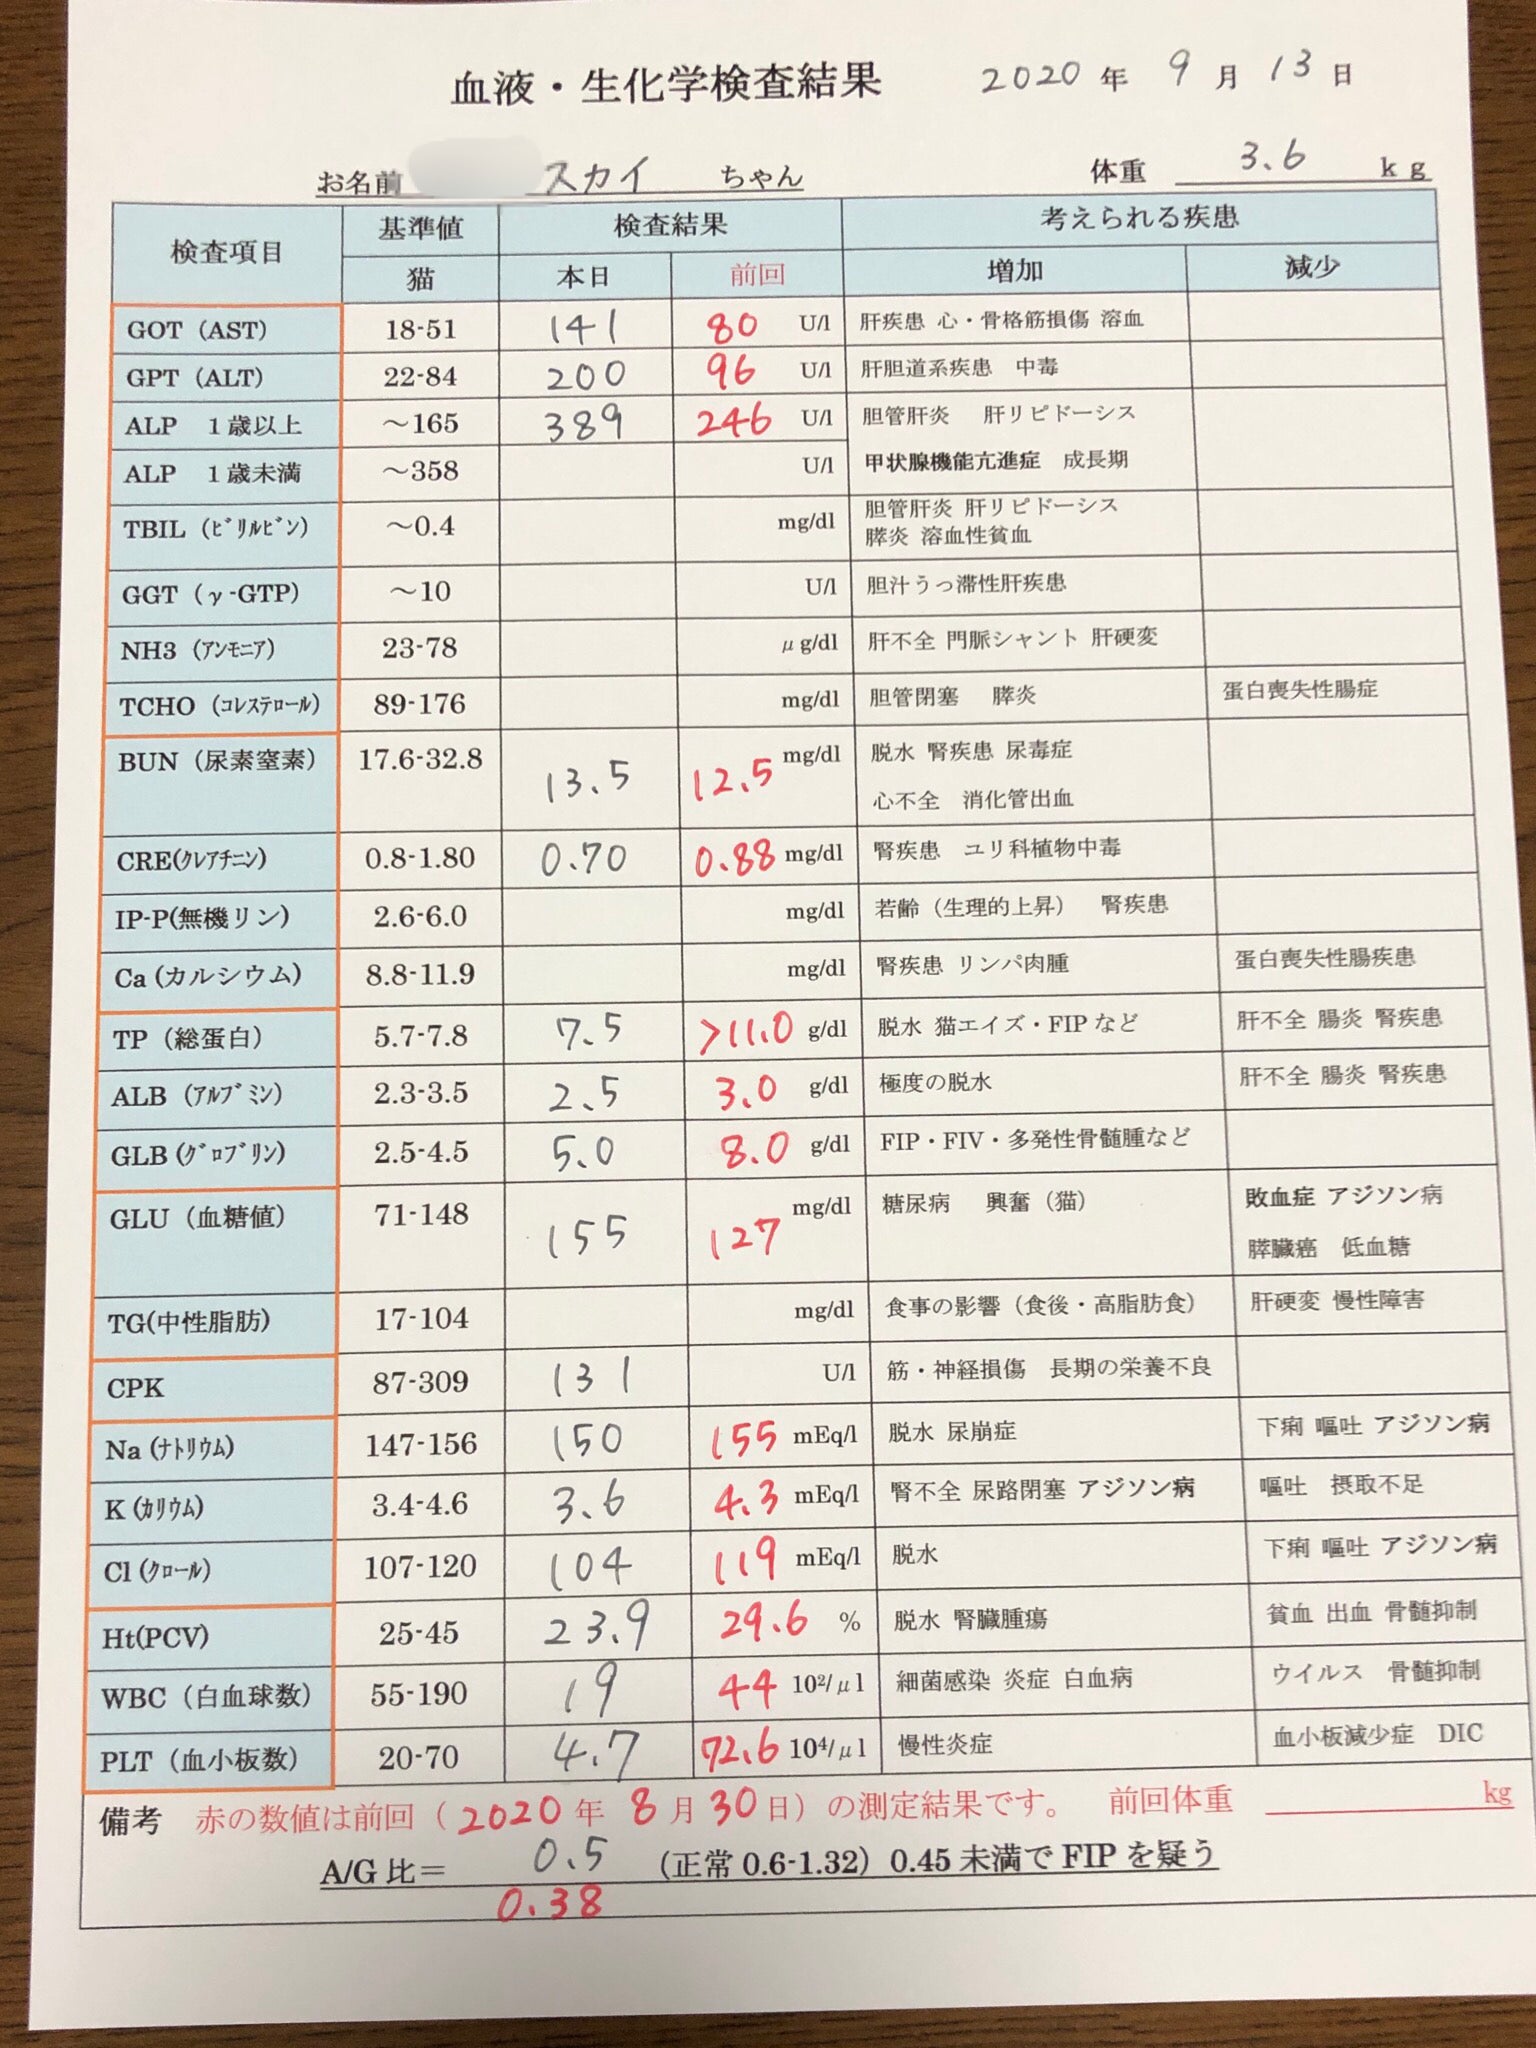 血液・生化学検査結果 2020 年 9 月 13 日
お名前 スカイ ちゃん 体重 3.6 kg
検査項目 基準値 検査結果 考えられる疾患
猫 本日 前回 増加 減少
GOT (AST) 18-51 141 80 U/l 肝疾患 心・骨格筋損傷 溶血
GPT (ALT) 22-84 200 96 U/l 肝胆道系疾患 中毒
ALP 1歳以上 ～165 389 246 U/l 胆管肝炎 肝リピドーシス
ALP 1歳未満 ～358 U/l 甲状腺機能亢進症 成長期
TBIL (ﾋﾞﾘﾙﾋﾞﾝ) ～0.4 mg/dl 胆管肝炎 肝リピドーシス
膵炎 溶血性貧血
GGT (γ-GTP) ～10 U/l 胆汁うっ滞性肝疾患
NH3 (ｱﾝﾓﾆｱ) 23-78 μg/dl 肝不全 門脈シャント 肝硬変
TCHO (ｺﾚｽﾃﾛｰﾙ) 89-176 mg/dl 胆管閉塞 膵炎 蛋白喪失性腸症
BUN (尿素窒素) 17.6-32.8 13.5 12.5 mg/dl 脱水 腎疾患 尿毒症
心不全 消化管出血
CRE(ｸﾚｱﾁﾆﾝ) 0.8-1.80 0.70 0.88 mg/dl 腎疾患 ユリ科植物中毒
IP-P(無機リン) 2.6-6.0 mg/dl 若齢（生理的上昇） 腎疾患
Ca (カルシウム) 8.8-11.9 mg/dl 腎疾患 リンパ肉腫 蛋白喪失性腸疾患
TP (総蛋白) 5.7-7.8 7.5 >11.0 g/dl 脱水 猫エイズ・FIP など 肝不全 腸炎 腎疾患
ALB (ｱﾙﾌﾞﾐﾝ) 2.3-3.5 2.5 3.0 g/dl 極度の脱水 肝不全 腸炎 腎疾患
GLB (ｸﾞﾛﾌﾞﾘﾝ) 2.5-4.5 5.0 8.0 g/dl FIP・FIV・多発性骨髄腫など
GLU (血糖値) 71-148 155 127 mg/dl 糖尿病 興奮（猫） 敗血症 アジソン病
膵臓癌 低血糖
TG(中性脂肪) 17-104 mg/dl 食事の影響（食後・高脂肪食） 肝硬変 慢性障害
CPK 87-309 131 U/l 筋・神経損傷 長期の栄養不良
Na (ﾅﾄﾘｳﾑ) 147-156 150 155 mEq/l 脱水 尿崩症 下痢 嘔吐 アジソン病
K (ｶﾘｳﾑ) 3.4-4.6 3.6 4.3 mEq/l 腎不全 尿路閉塞 アジソン病 嘔吐 摂取不足
Cl (ｸﾛｰﾙ) 107-120 104 119 mEq/l 脱水 下痢 嘔吐 アジソン病
Ht(PCV) 25-45 23.9 29.6 % 脱水 腎臓腫瘍 貧血 出血 骨髄抑制
WBC (白血球数) 55-190 19 44 10²/μl 細菌感染 炎症 白血病 ウイルス 骨髄抑制
PLT (血小板数) 20-70 4.7 72.6 10⁴/μl 慢性炎症 血小板減少症 DIC
備考 赤の数値は前回（2020 年 8 月 30 日）の測定結果です。 前回体重 kg
A/G 比＝ 0.5 （正常 0.6-1.32）0.45 未満で FIP を疑う
0.38